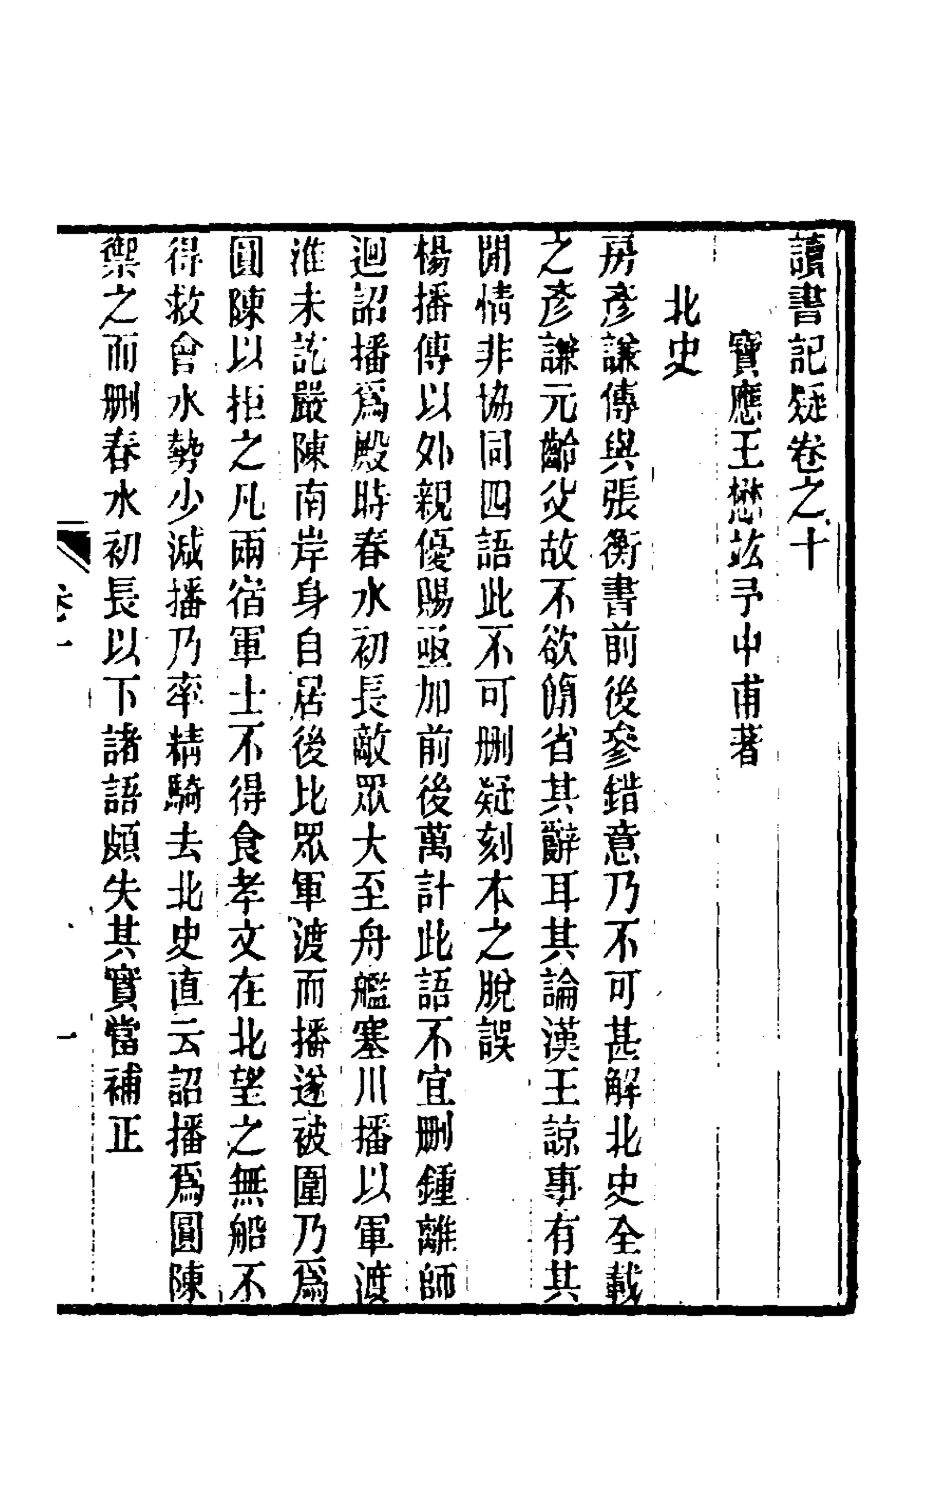 讀書記疑卷之十
寶應王懋竑予中甫著
北史
房彥謙傳與張衡書前後參錯意乃不可甚解北史全載
之彥謙元齡父故不欲簡省其辭耳其論漢王諒事有其
開情非協同四語此不可刪疑刻本之脫誤
楊播傳以外親優賜亟加前後萬計此語不宜刪鍾離師
迴詔播爲殿時春水初長敵眾大至舟艦塞川播以軍渡
淮未訖嚴陳南岸身自居後比眾軍渡而播遂被圍乃爲
圓陳以拒之凡兩宿軍士不得食孝文在北望之無船不
得救會水勢少減播乃率精騎去北史直云詔播爲圓陳
禦之而刪春水初長以下諸語頗失其實當補正
卷十
一